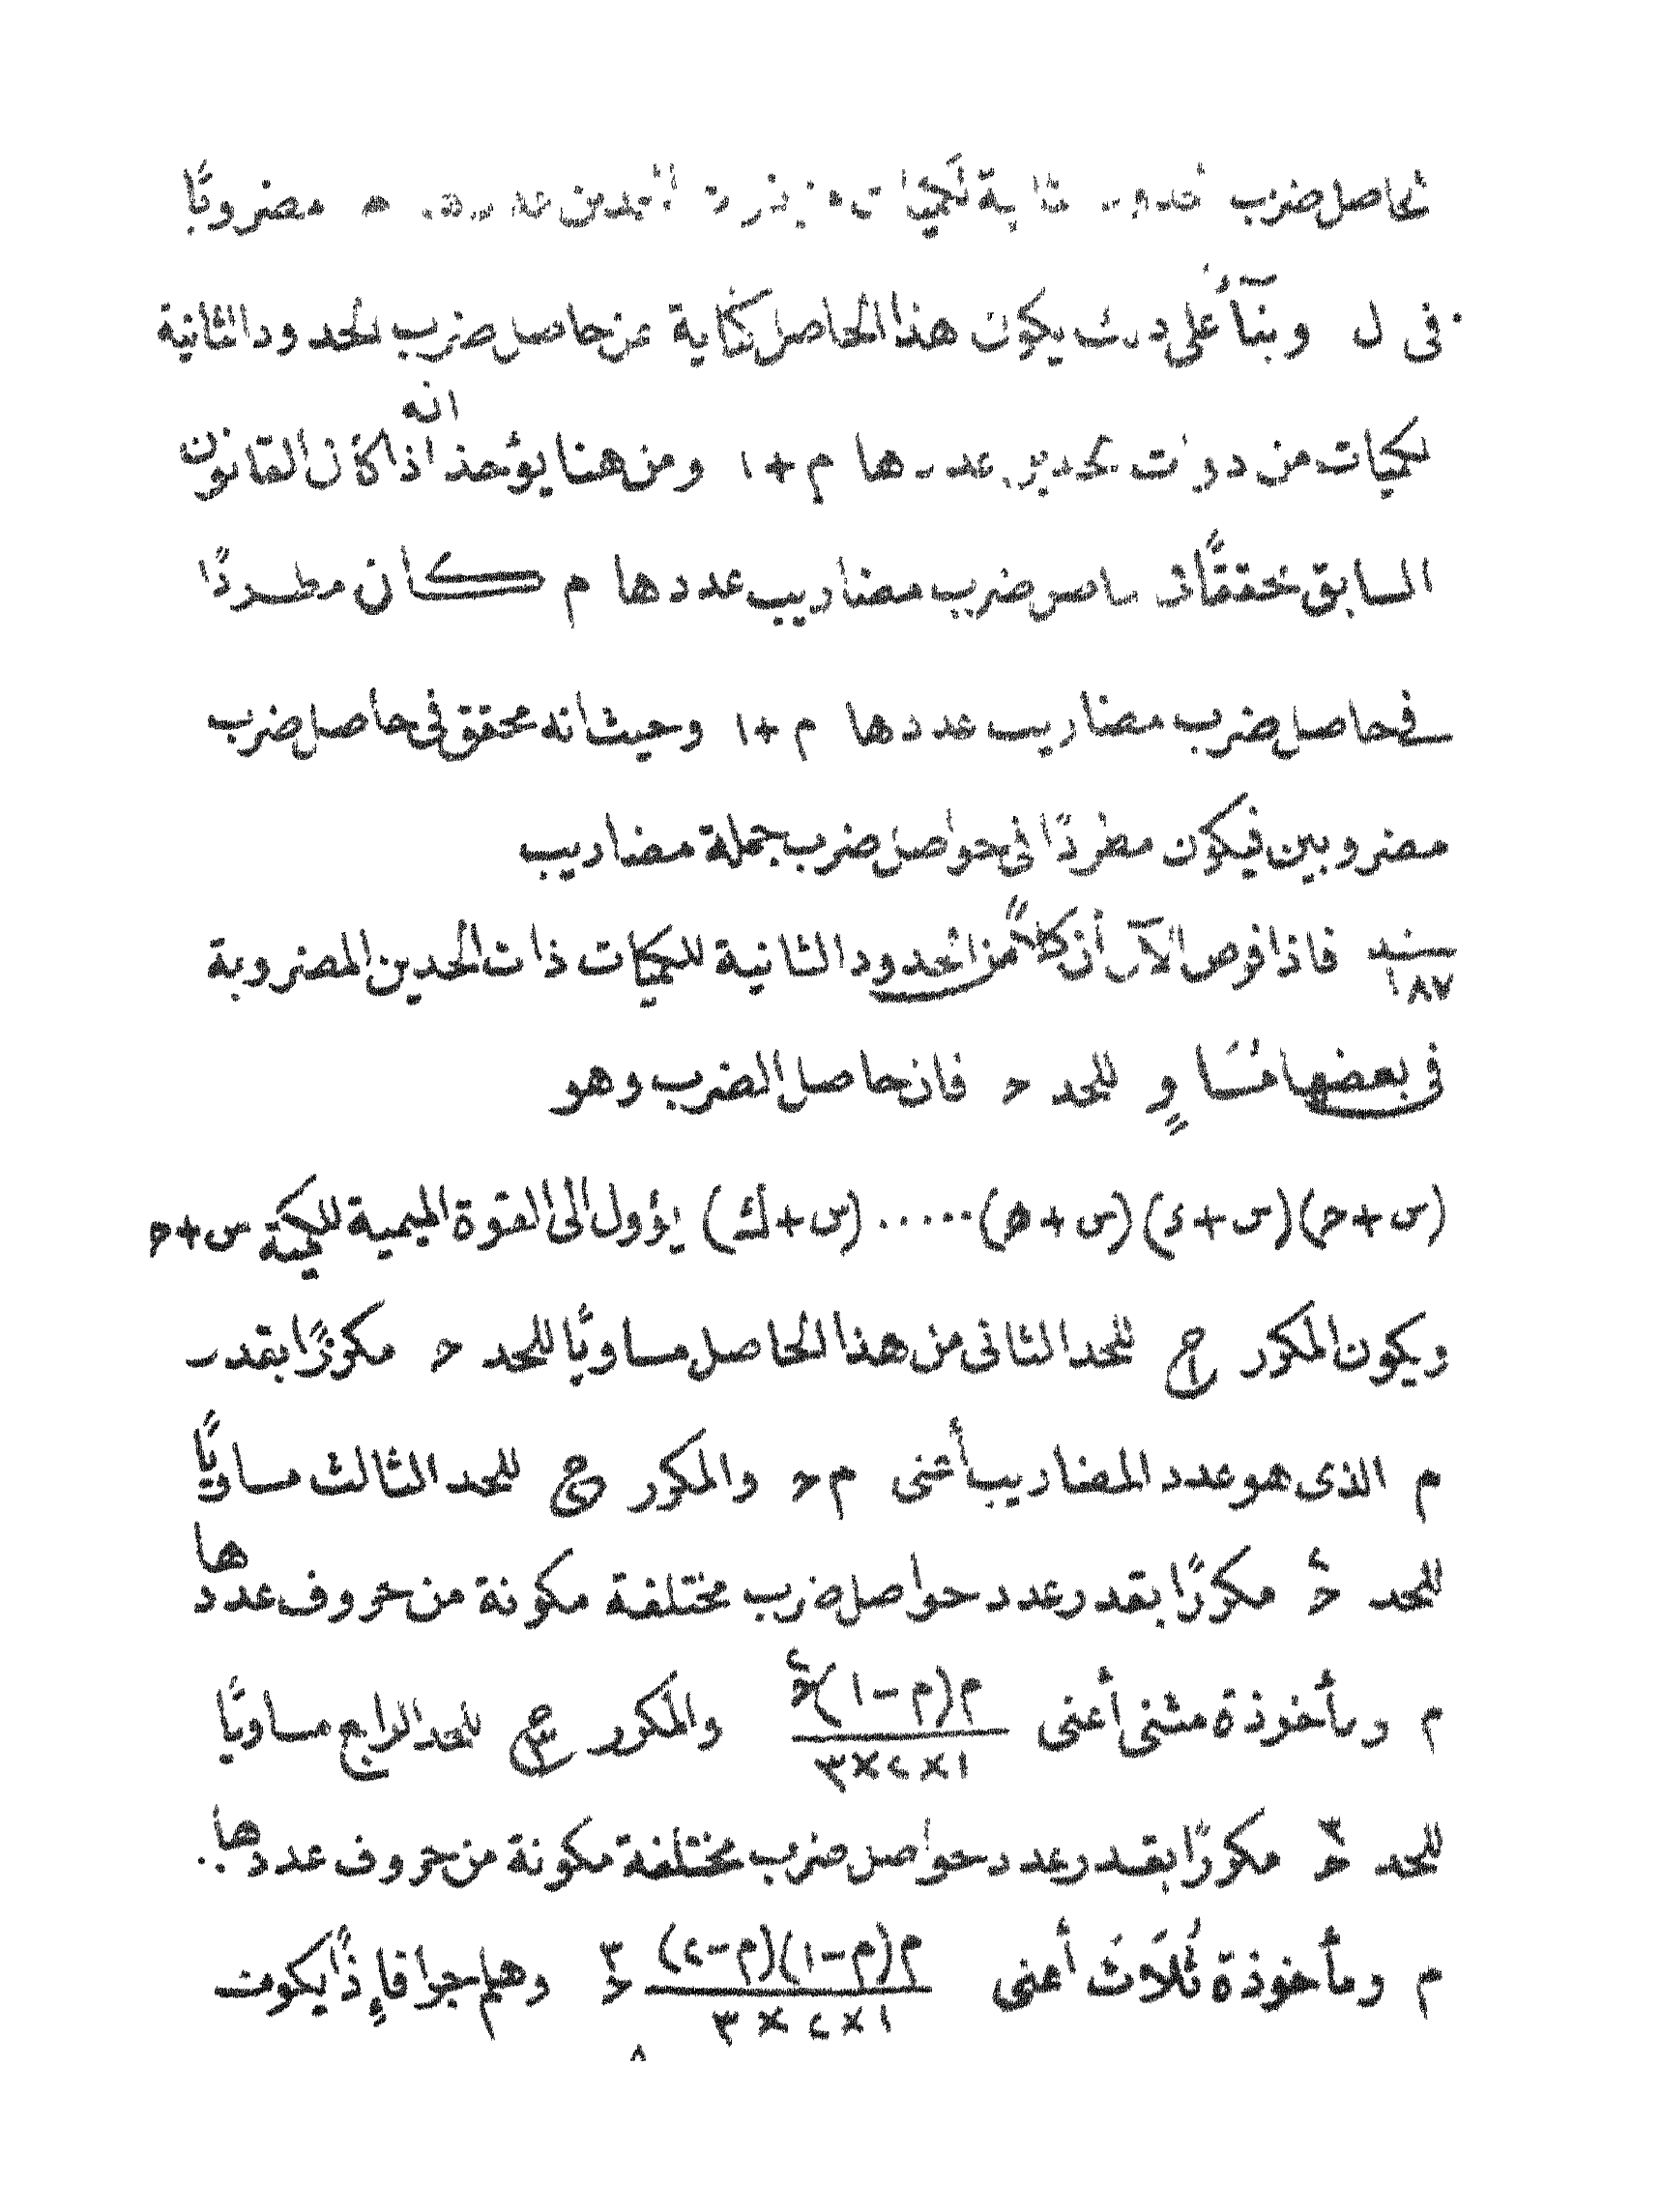 لحاصل ضرب حدود ثانية لكميات ذوات حدين عددها م مضروبًا
فى ل وبنآءً على ذلك يكون هذا الحاصل كناية عن حاصل ضرب الحدود الثانية
لكميات من ذوات الحدين عددها م + ١ ومن هنا يؤخذ انه اذا كان القانون
السابق محققًا فى حاصل ضرب مضاريب عددها م كان مطردًا
فى حاصل ضرب مضاريب عددها م + ١ وحيث انه محقق فى حاصل ضرب
مضروبين فيكون مطردًا فى حواصل ضرب جملة مضاريب
سنـد ١٨٧ فاذا فرض الآن أن كلاً من الحدود الثانية للكميات ذات الحدين المضروبة
فى بعضها مُسَاوٍ للحد حـ فان حاصل الضرب وهو
(س + حـ)(س + ء)(س + هـ)......(س + ك) يؤول الى القوة الميمية للكمية س + حـ
ويكون المكرر ج١ للحد الثانى من هذا الحاصل مساويًا للحد حـ مكررًا بقدر
م الذى هو عدد المضاريب أعنى م حـ والمكرر ج٢ للحد الثالث مساويًا
للحد حـ٢ مكررًا بقدر عدد حواصل ضرب مختلفة مكونة من حروف عددها
م ومأخوذة مثنى أعنى م(م - ١)حـ٢ / ١×٢×٣ والمكرر ج٣ للحد الرابع مساويًا
للحد حـ٣ مكررًا بقدر عدد حواصل ضرب مختلفة مكونة من حروف عددها
م ومأخوذة ثُلَاثَ أعنى م(م - ١)(م - ٢) / ١×٢×٣ حـ٣ وهلم جرا فإذًا يكون
٨